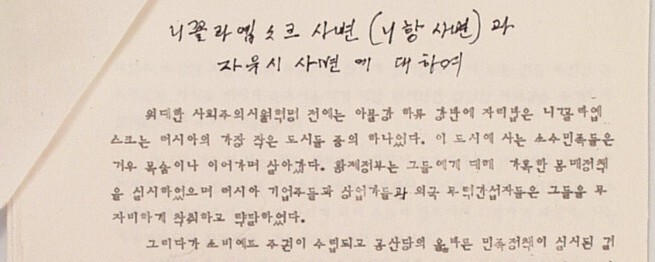 니꼴라엡쓰크 사변 (니항 사변)과
자유시 사변에 대하여
위대한 사회주의시월혁명 전에는 아물강 하류 강반에 자리잡은 니꼴라엡
스크는 러시아의 가장 작은 도시들 중의 하나였다. 이 도시에 사는 소수민족들은
겨우 목숨이나 이어가며 살아갔다. 황제정부는 그들에게 대해 가혹한 몽매정책
을 실시하였으며 러시아 기업주들과 상업가들과 외국 무력간섭자들은 그들을 무
자비하게 착취하고 략탈하였다.
그러다가 쏘비에트 주권이 수립되고 공산당의 올바른 민족정책이 실시된 결